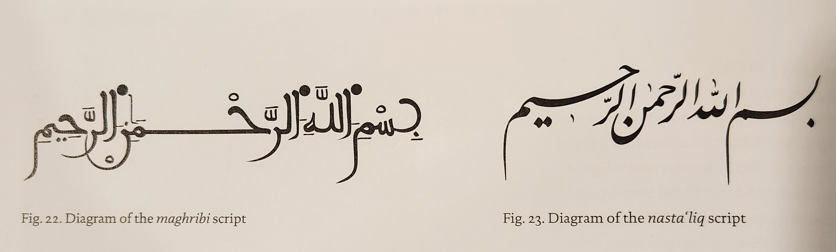 بِسْمِ اللَّهِ الرَّحْمٰنِ الرَّحِيمِ
Fig. 22. Diagram of the maghribi script
بسم الله الرحمن الرحیم
Fig. 23. Diagram of the nastaʿliq script